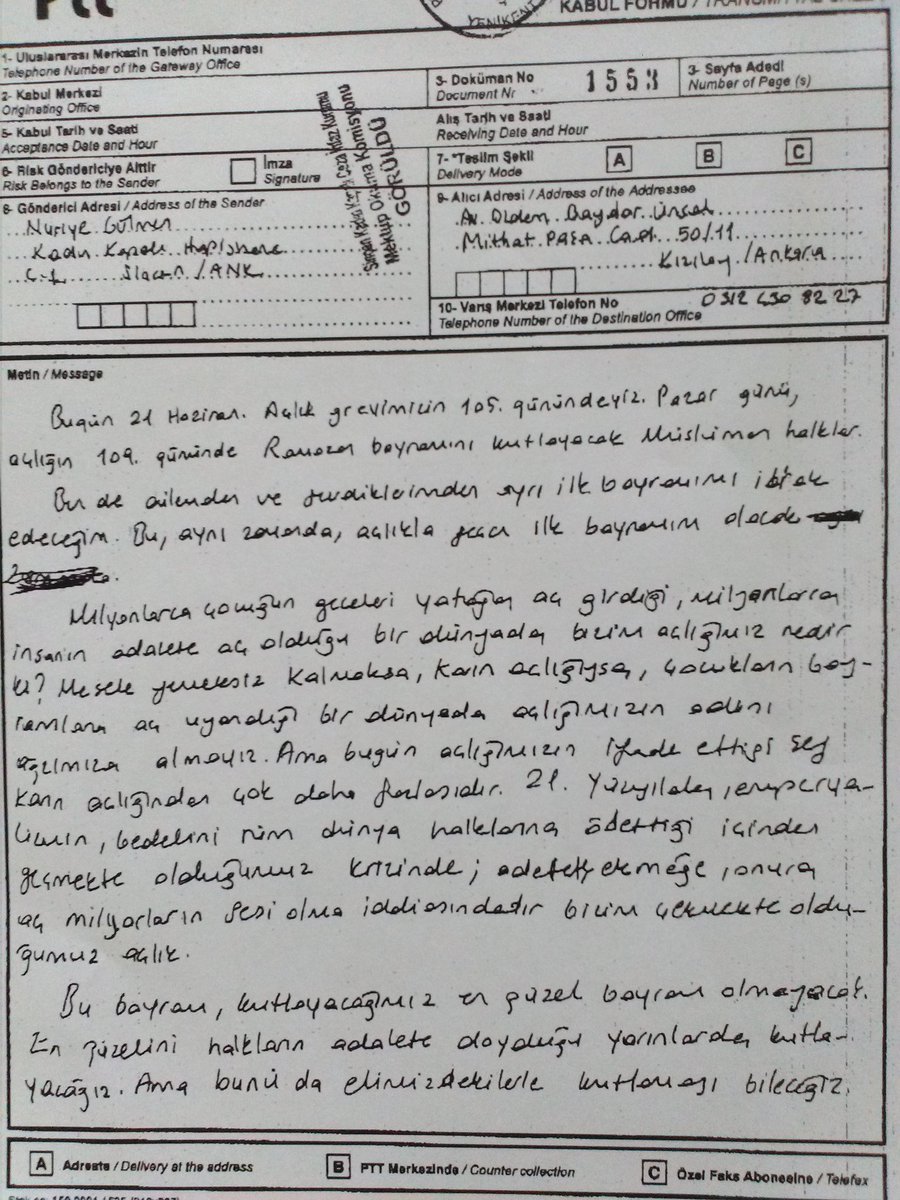 Ptt
YENİKENT
KABUL FORMU /
1- Uluslararası Merkezin Telefon Numarası
Telephone Number of the Gateway Office
2- Kabul Merkezi
Originating Office
3- Doküman No
Document Nr
1553
3- Sayfa Adedi
Number of Page (s)
5- Kabul Tarih ve Saati
Acceptance Date and Hour
Alış Tarih ve Saati
Receiving Date and Hour
6- Risk Göndericiye Aittir
Risk Belongs to the Sender
İmza
Signature
7- *Teslim Şekli
Delivery Mode
A
B
C
Mektup Okuma Komisyonu
GÖRÜLDÜ
8- Gönderici Adresi / Address of the Sender
Nuriye Gülmen
Kadın Kapalı Hapishane
C-1 Sincan /ANK
9- Alıcı Adresi / Address of the Addressee
Av. Baydar Ünsal
Mithat PAŞA Cad. 50/11
Kızılay / Ankara
10- Varış Merkezi Telefon No
Telephone Number of the Destination Office
0312 430 82 27
Metin / Message
Bugün 21 Haziran. Açlık grevimizin 105. günündeyiz. Pazar günü,
açlığın 109. gününde Ramazan bayramını kutlayacak Müslüman halklar.
Ben de ailemden ve sevdiklerimden ayrı ilk bayramımı idrak
edeceğim. Bu, aynı zamanda, açlıkla geçen ilk bayramım olacak
Milyonlarca çocuğun geceleri yatağa aç girdiği, milyonlarca
insanın adalete aç olduğu bir dünyada bizim açlığımız nedir
ki? Mesele yemeksiz kalmaksa, karın açlığıysa, çocukların bay-
ramlara aç uyandığı bir dünyada açlığımızın adını
ağzımıza almayız. Ama bugün açlığımızın ifade ettiği şey
karın açlığından çok daha fazlasıdır. 21. Yüzyılda, emperya-
lizmin, bedelini tüm dünya halklarına ödettiği içinden
geçmekte olduğumuz krizinde; adalete, ekmeğe, onura
aç milyonların sesi olma iddiasındadır bizim çekmekte oldu-
ğumuz açlık.
Bu bayram, kutlayacağımız en güzel bayram olmayacak.
En güzelini halkların adalete doyduğu yarınlarda kutla-
yacağız. Ama bunu da elimizdekilerle kutlamayı bileceğiz.
A Adreste / Delivery at the address
B PTT Merkezinde / Counter collection
C Özel Faks Abonesine / Telefax